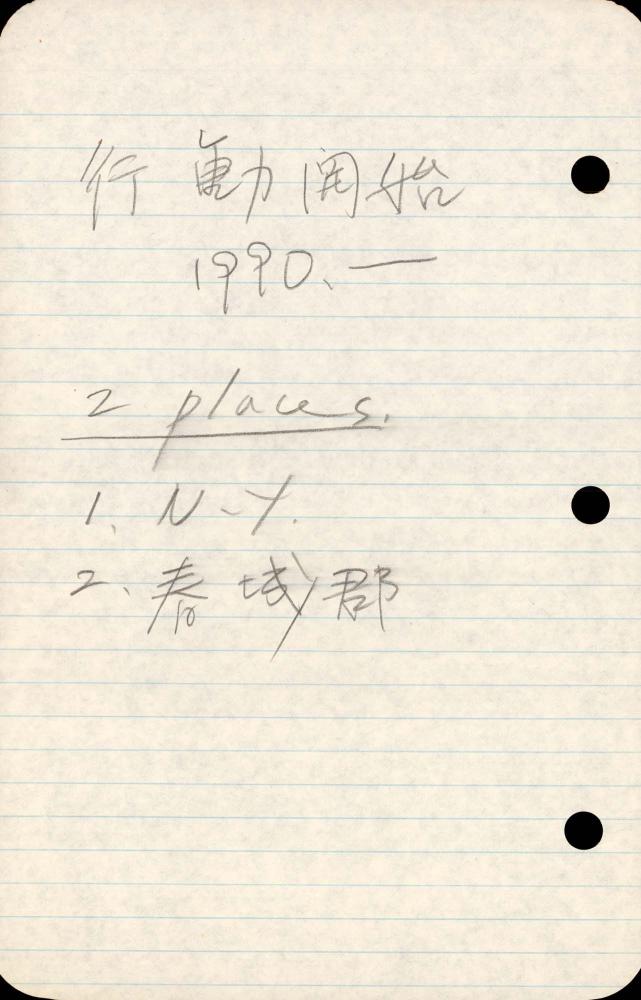 行動開始
1990. —
2 places.
1. N.Y.
2. 春城郡